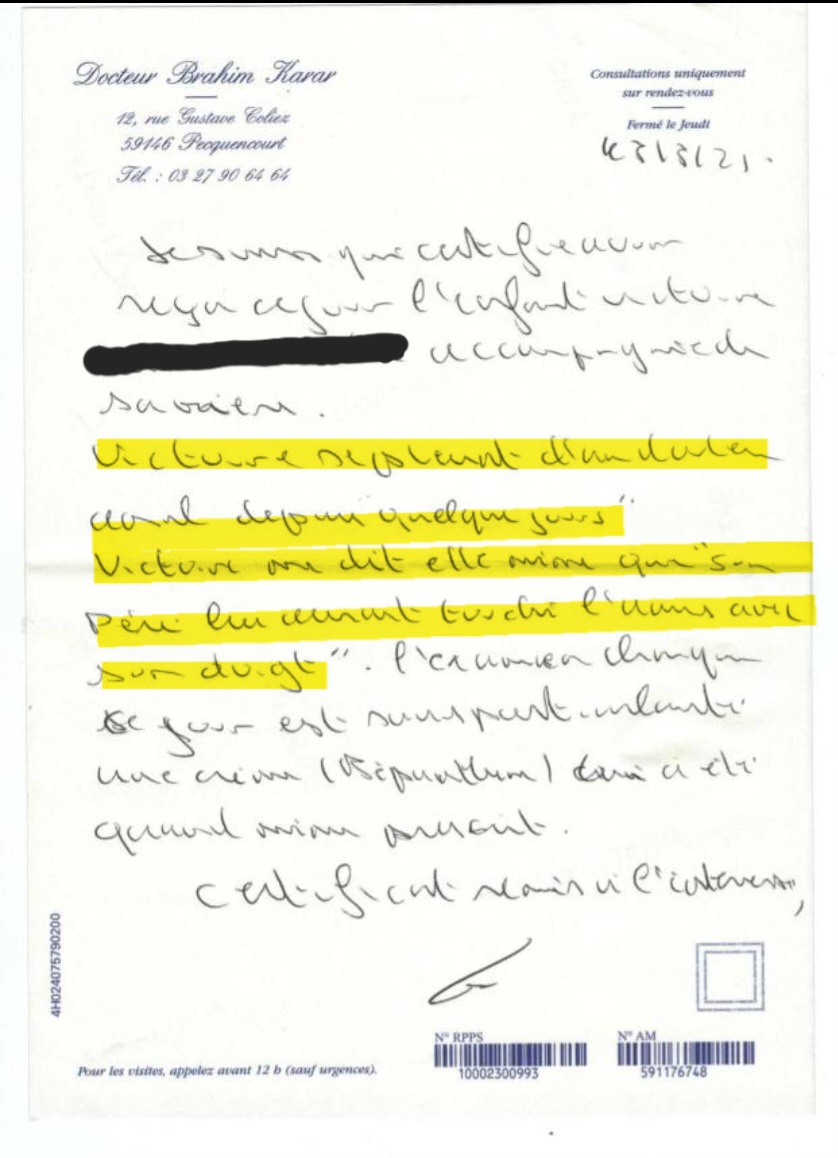 Docteur Brahim Karar
12, rue Gustave Coliez
59146 Pecquencourt
Tél. : 03 27 90 64 64
Consultations uniquement
sur rendez-vous
Fermé le Jeudi
Je soussi qui certifie avoir
reçu ce jour l'enfant Victoire
accompagnée de
sa mère.
Victoire se plaint d'une douleur
anal depuis quelque jours"
Victoire me dit elle même que "son
père lui aurait touché l'anus avec
son doigt". l'examen clinique
ce jour est sans particularité
une crème (Bépanthen) lui a été
quand même prescrit.
Certificat remis à l'intéressé,
4H024075790200
N° RPPS
10002300993
N° AM
591176748
Pour les visites, appelez avant 12 h (sauf urgences).